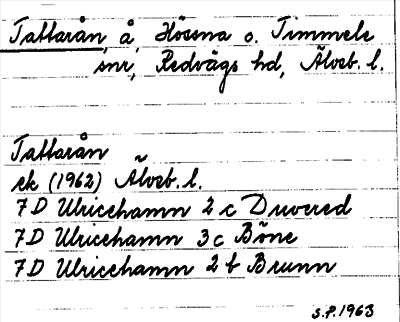 Tattarån, å, Hössna o. Timmele
snr, Redvägs hd, Älvsb. l.
Tattarån
ek (1962) Älvsb. l.
7D Ulricehamn 2 c Duvered
7D Ulricehamn 3 c Böne
7D Ulricehamn 2 b Brunn
S.P. 1963